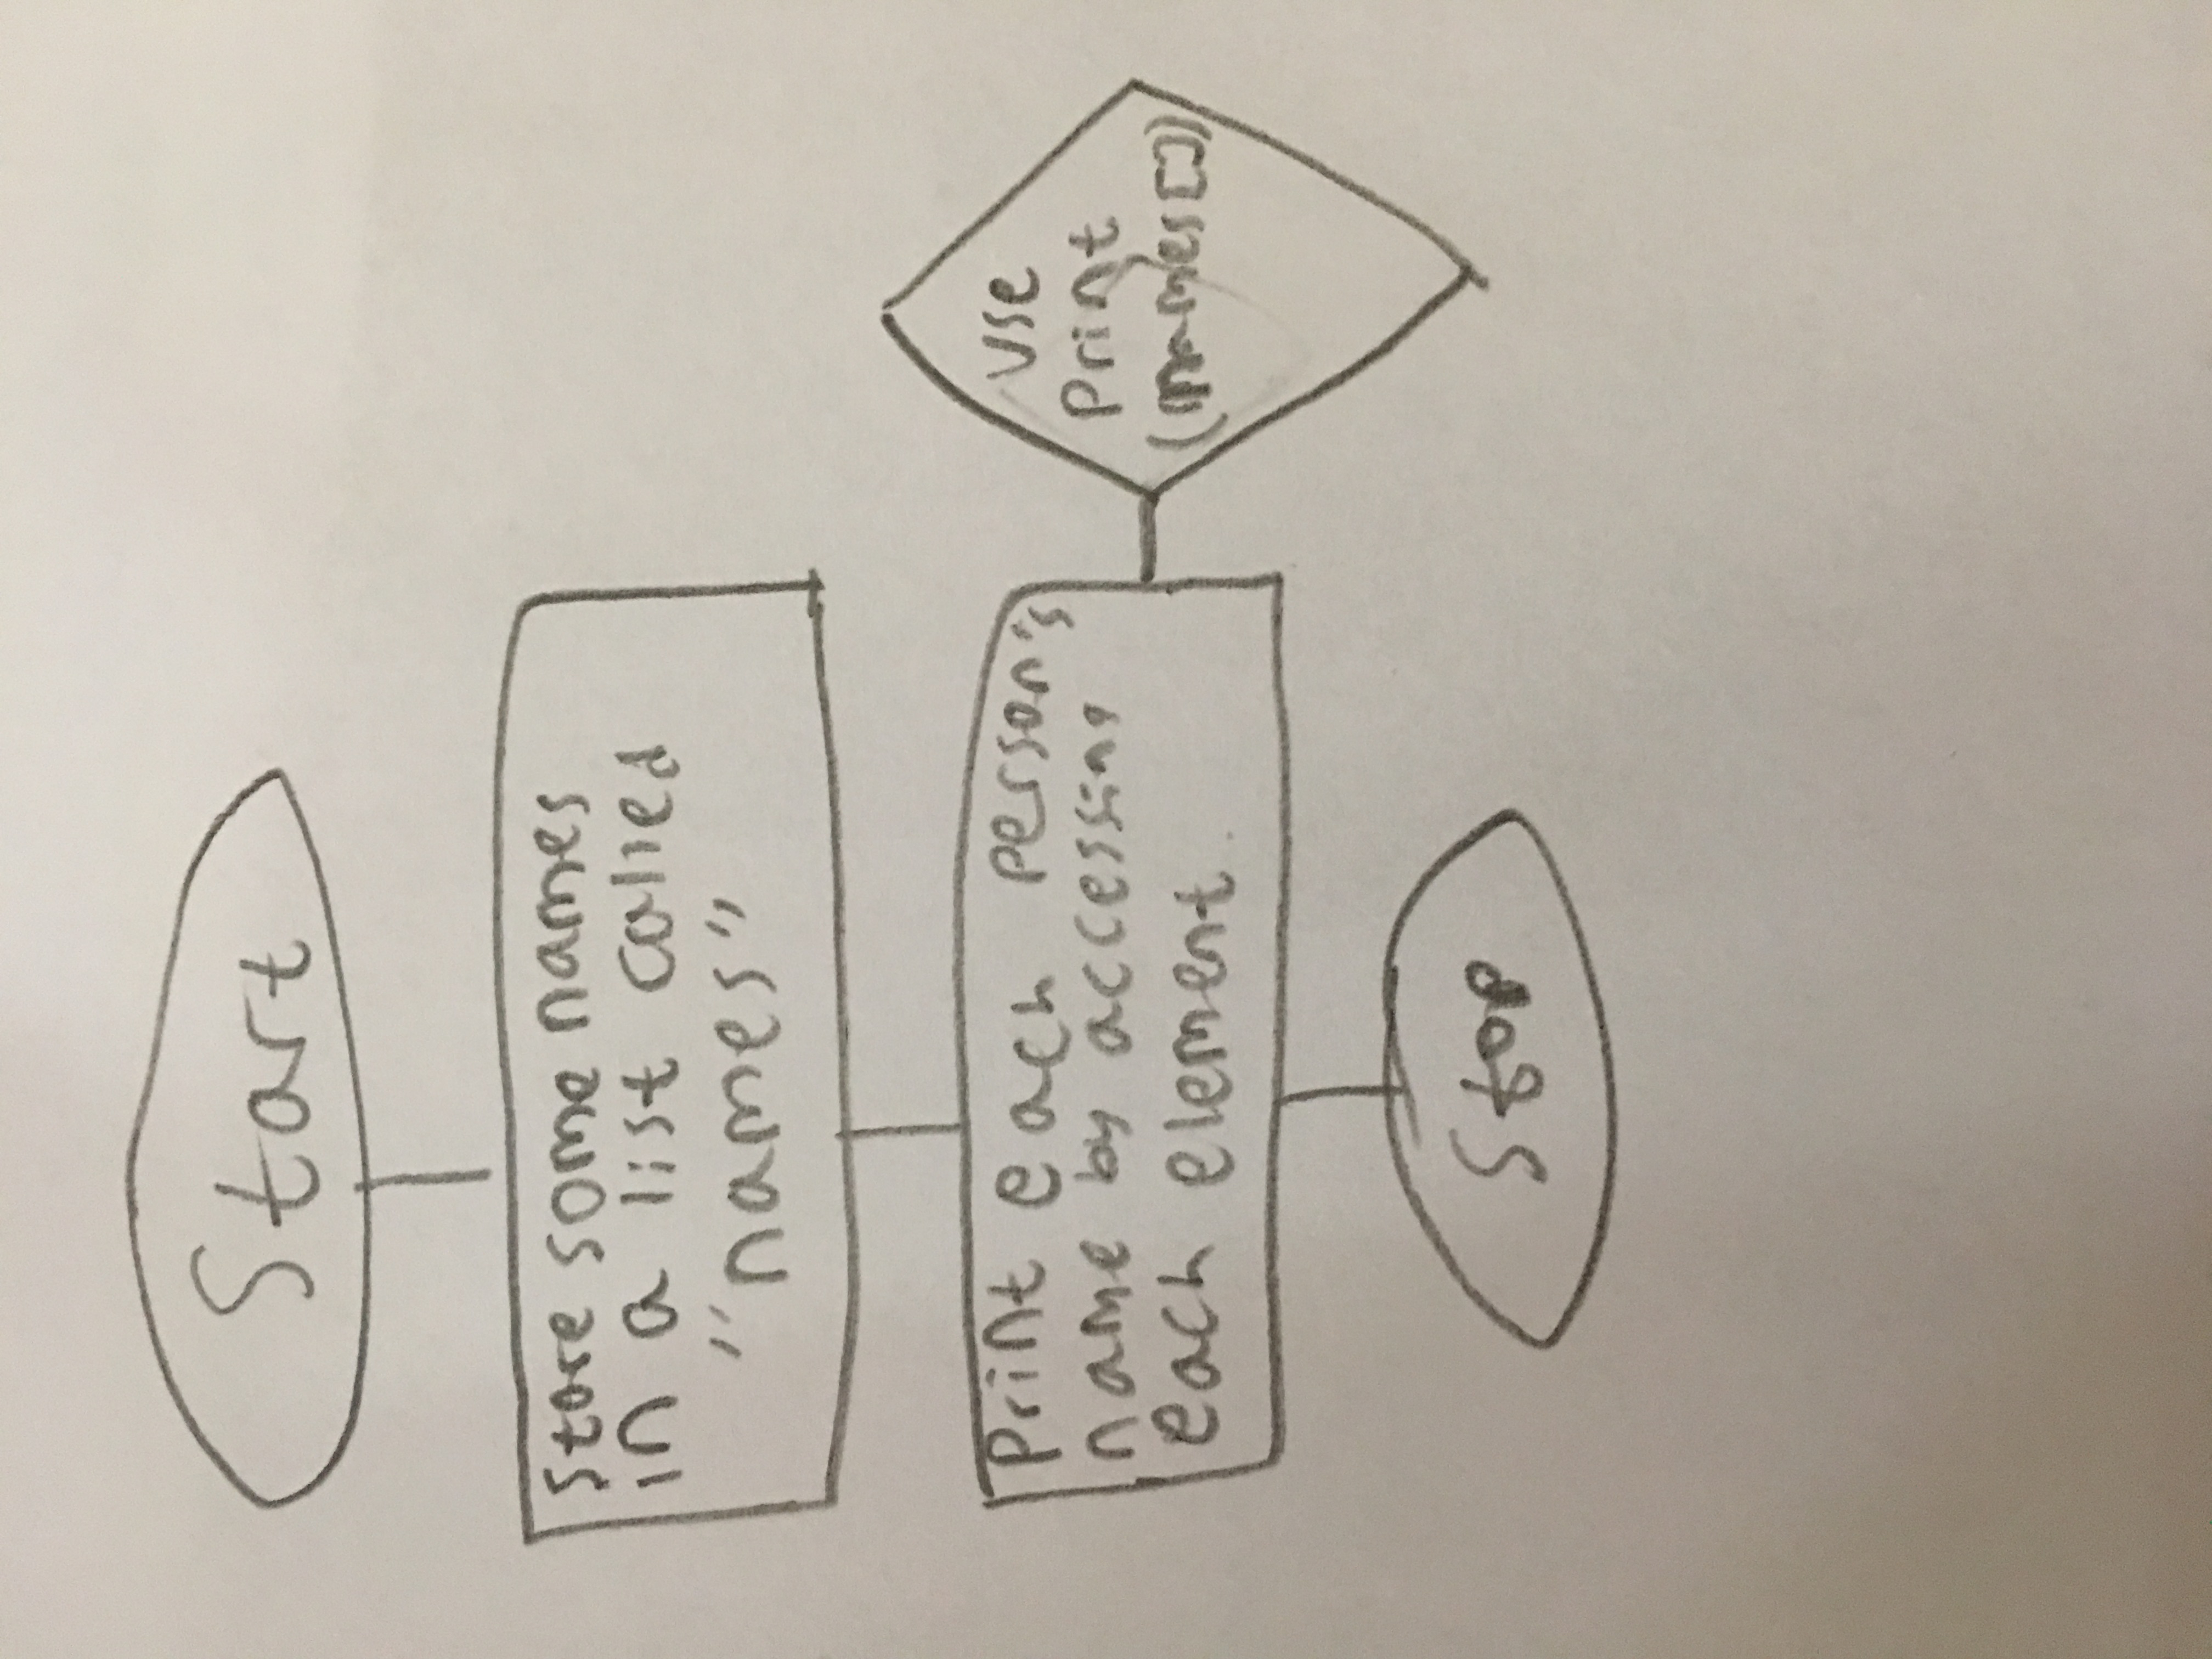 Start
Store some names
in a list called
"names"
Print each person's
name by accessing
each element.
Use
Print
(names[])
Stop